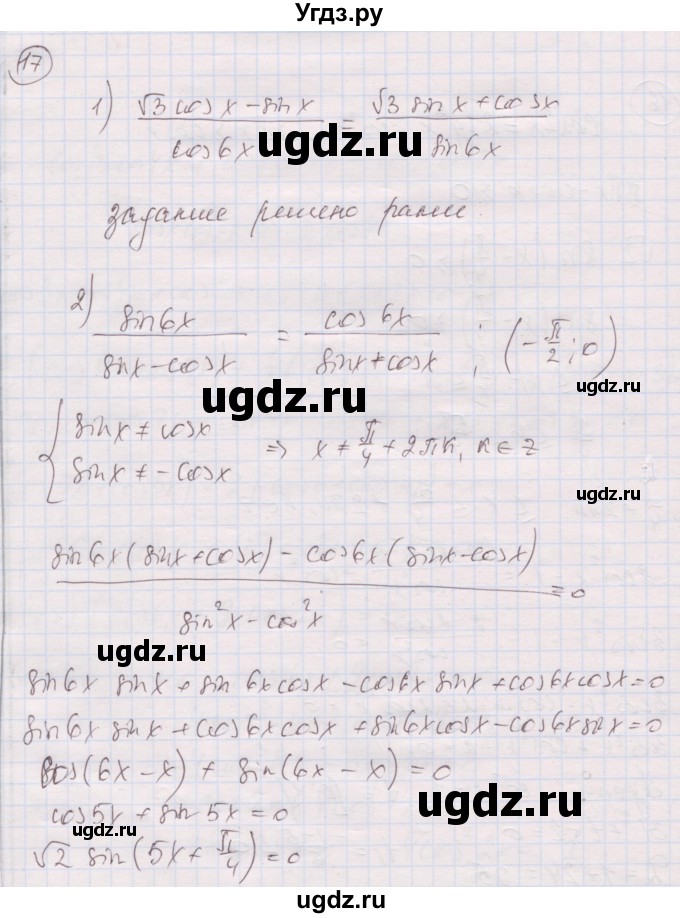 Угдз.ру
17
1) (√3 cos x − sin x)/(cos 6x) = (√3 sin x + cos x)/(sin 6x)
ugdz.ru
задание решено ранее.
2) (sin 6x)/(sin x − cos x) = (cos 6x)/(sin x + cos x) ; (−π/2; 0)
ugdz.ru
ugdz.ru
{ sin x ≠ cos x
sin x ≠ − cos x ⇒ x ≠ π/4 + 2πk, k ∈ z
ugdz.ru
(sin 6x (sin x + cos x) − cos 6x (sin x − cos x))/(sin²x − cos²x) = 0
ugdz.ru
ugdz.ru
sin 6x sin x + sin 6x cos x − cos 6x sin x + cos 6x cos x = 0
sin 6x sin x + cos 6x cos x + sin 6x cos x − cos 6x sin x = 0
cos(6x − x) + sin(6x − x) = 0
ugdz.ru
cos 5x + sin 5x = 0
ugdz.ru
√2 sin(5x + π/4) = 0
ugdz.ru